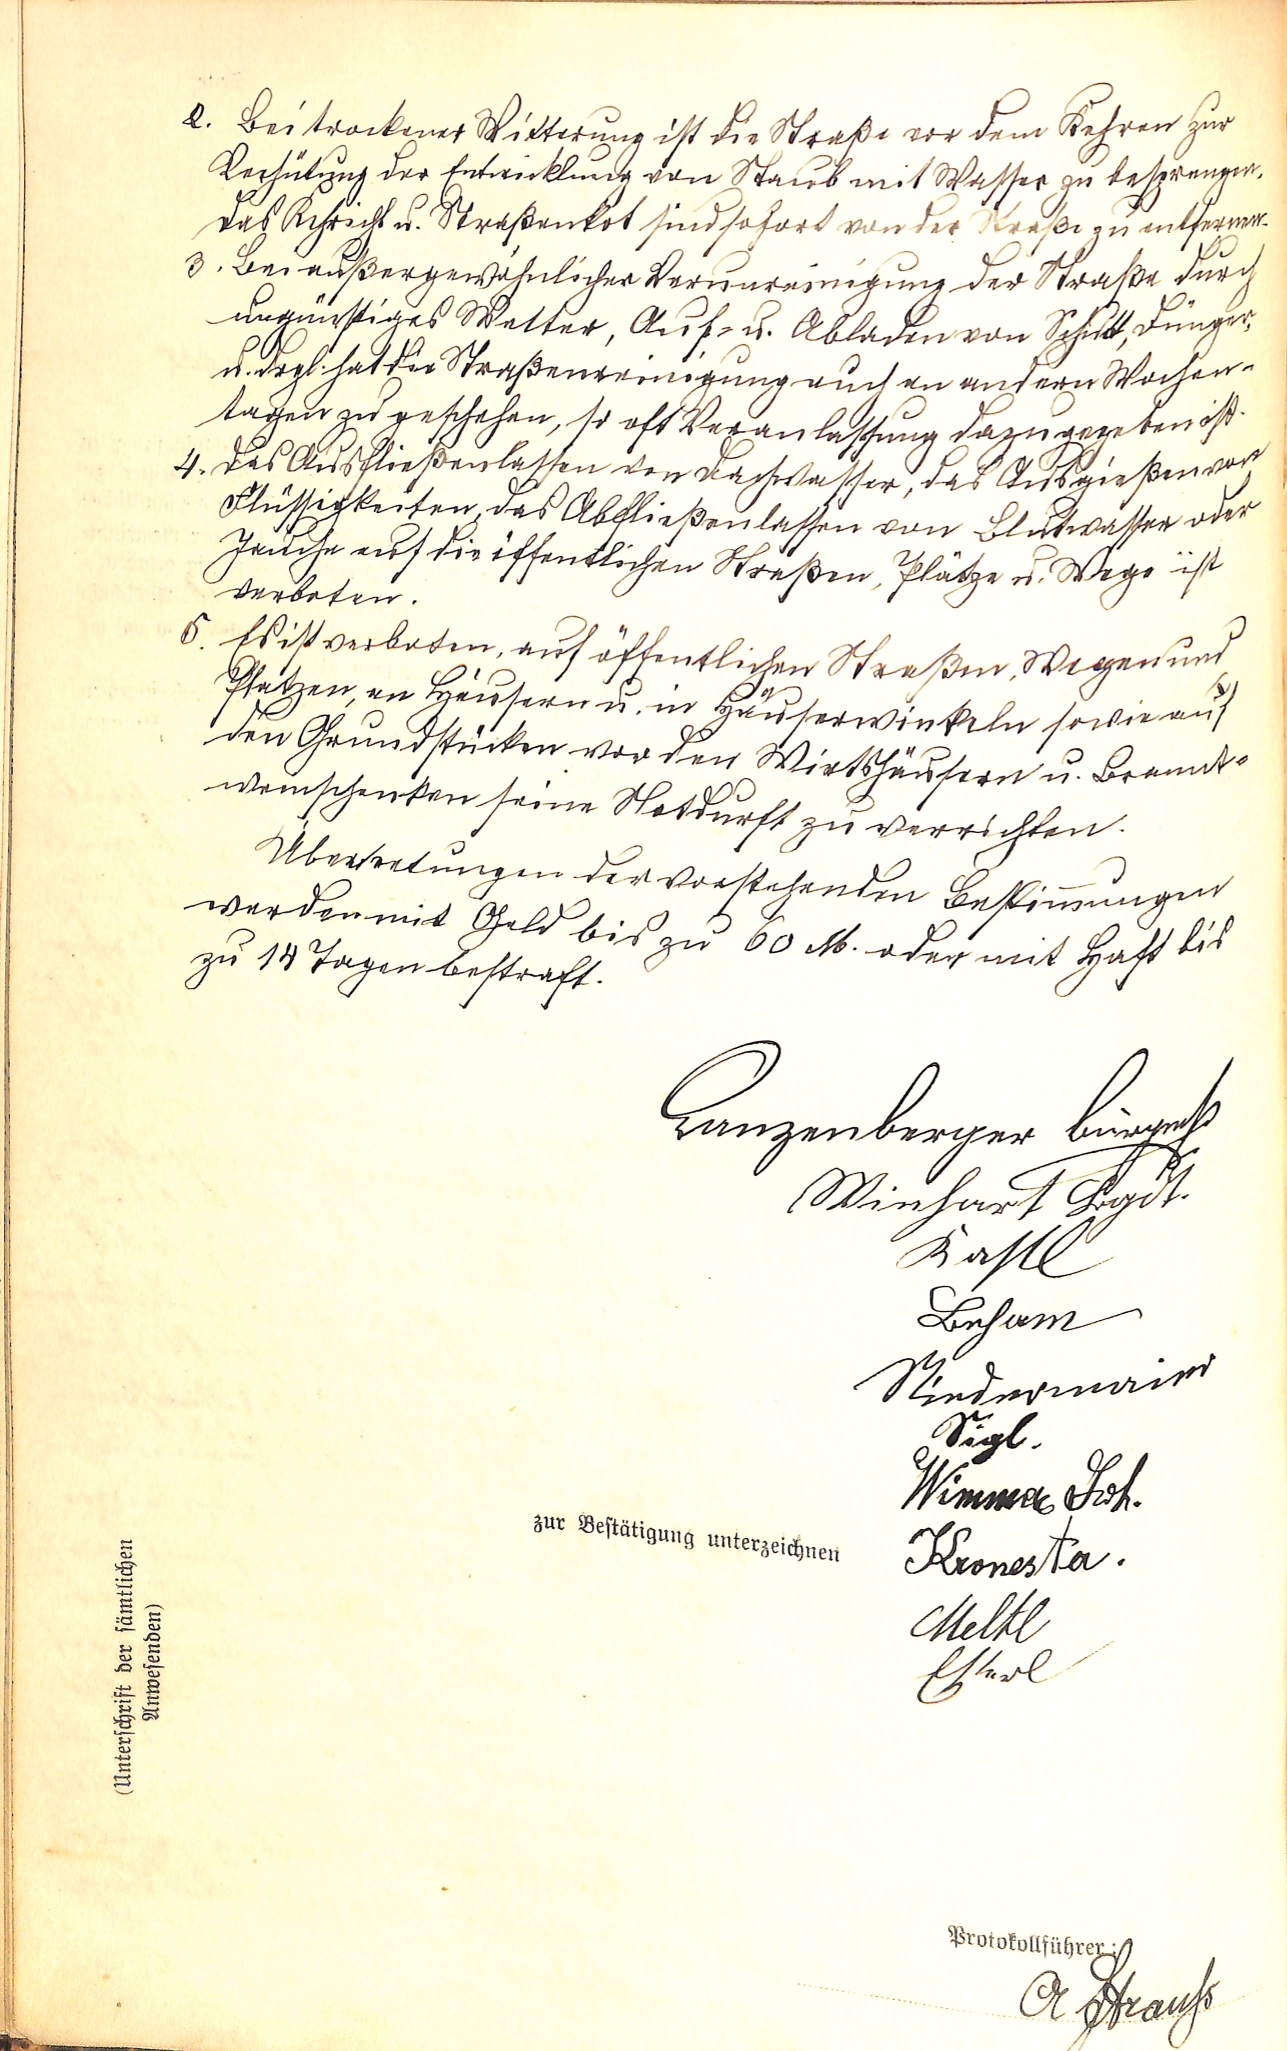 2. Bei trockener Witterung ist die Straße vor dem Kehren zur
Verhütung der Entwicklung von Staub mit Wasser zu besprengen.
Das Kehricht u. Straßenkot sind sofort von der Straße zu entfernen.
3. Bei außergewöhnlicher Verunreinigung der Straße durch
ungünstiges Wetter, Auf- u. Abladen von Schutt, Dünger,
u. drgl. hat die Straßenreinigung auch an andern Wochen-
tagen zu geschehen, so oft Veranlassung dazu gegeben ist.
4. Das Ausfließenlassen von Dachwasser, das Ausgießen von
Flüssigkeiten, das Abfließenlassen von Blutwasser oder
Jauche auf die öffentlichen Straßen, Plätze u. Wege ist
verboten.
5. Es ist verboten, auf öffentlichen Straßen, Wegen und
Plätzen, an Häusern u. in Häuserwinkeln sowie auf
den Grundstücken vor den Wirtshäusern u. Brannt-
weinschenken seine Notdurft zu verrichten.
Übertretungen der vorstehenden Bestimmungen
werden mit Geld bis zu 60 M. oder mit Haft bis
zu 14 Tagen bestraft.
Lanzenberger Bürgmst
Winhart
Kastl
Beham
Niedermaier
Sigl.
Wimmer Joh.
zur Bestätigung unterzeichnen
Kronesta.
Meltl
Esterl
(Unterschrift der sämtlichen
Anwesenden)
Protokollführer:
A Strauß